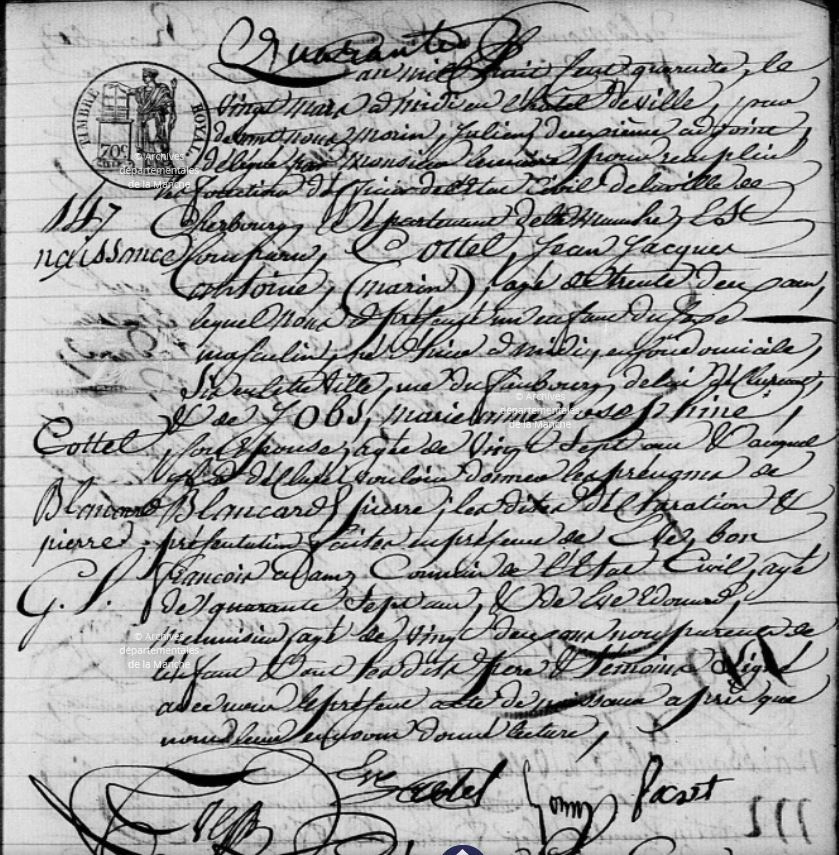 Quarante
an mil huit cent quarante, le
vingt mars à midi en l'hotel de ville, par
devant nous Morin, Julien, deuxième adjoint,
délégué par Monsieur le maire pour remplir
les fonctions d'officier de l'Etat Civil de la ville de
Cherbourg, département de la Manche, Est
147
naissance
Comparu, Cottel, Jean Jacques
Antoine, (marin), agé de trente deux ans,
lequel nous a présenté un enfant du sexe
masculin, né à midi, en son domicile,
sis en cette ville, rue du faubourg, de lui déclarant,
& de marie anne josephine,
Cottel,
Blancard
pierre.
G. S.
son épouse, agée de vingt sept ans & auquel
il a déclaré vouloir donner les prénoms de
Blancard pierre; les dites déclaration &
présentation faites en présence de bon
françois adam, Commis de l'Etat Civil, agé
de quarante sept ans, & de Edouard,
menuisier, agé de vingt deux ans, non parents de
l'enfant & ont les dits père & témoins signé
avec nous le présent acte de naissance après que
nous leur en avons donné lecture,
Cottel
TIMBRE ROYAL
70c
© Archives
départementales
de la Manche
© Archives
départementales
de la Manche
© Archives
départementales
de la Manche